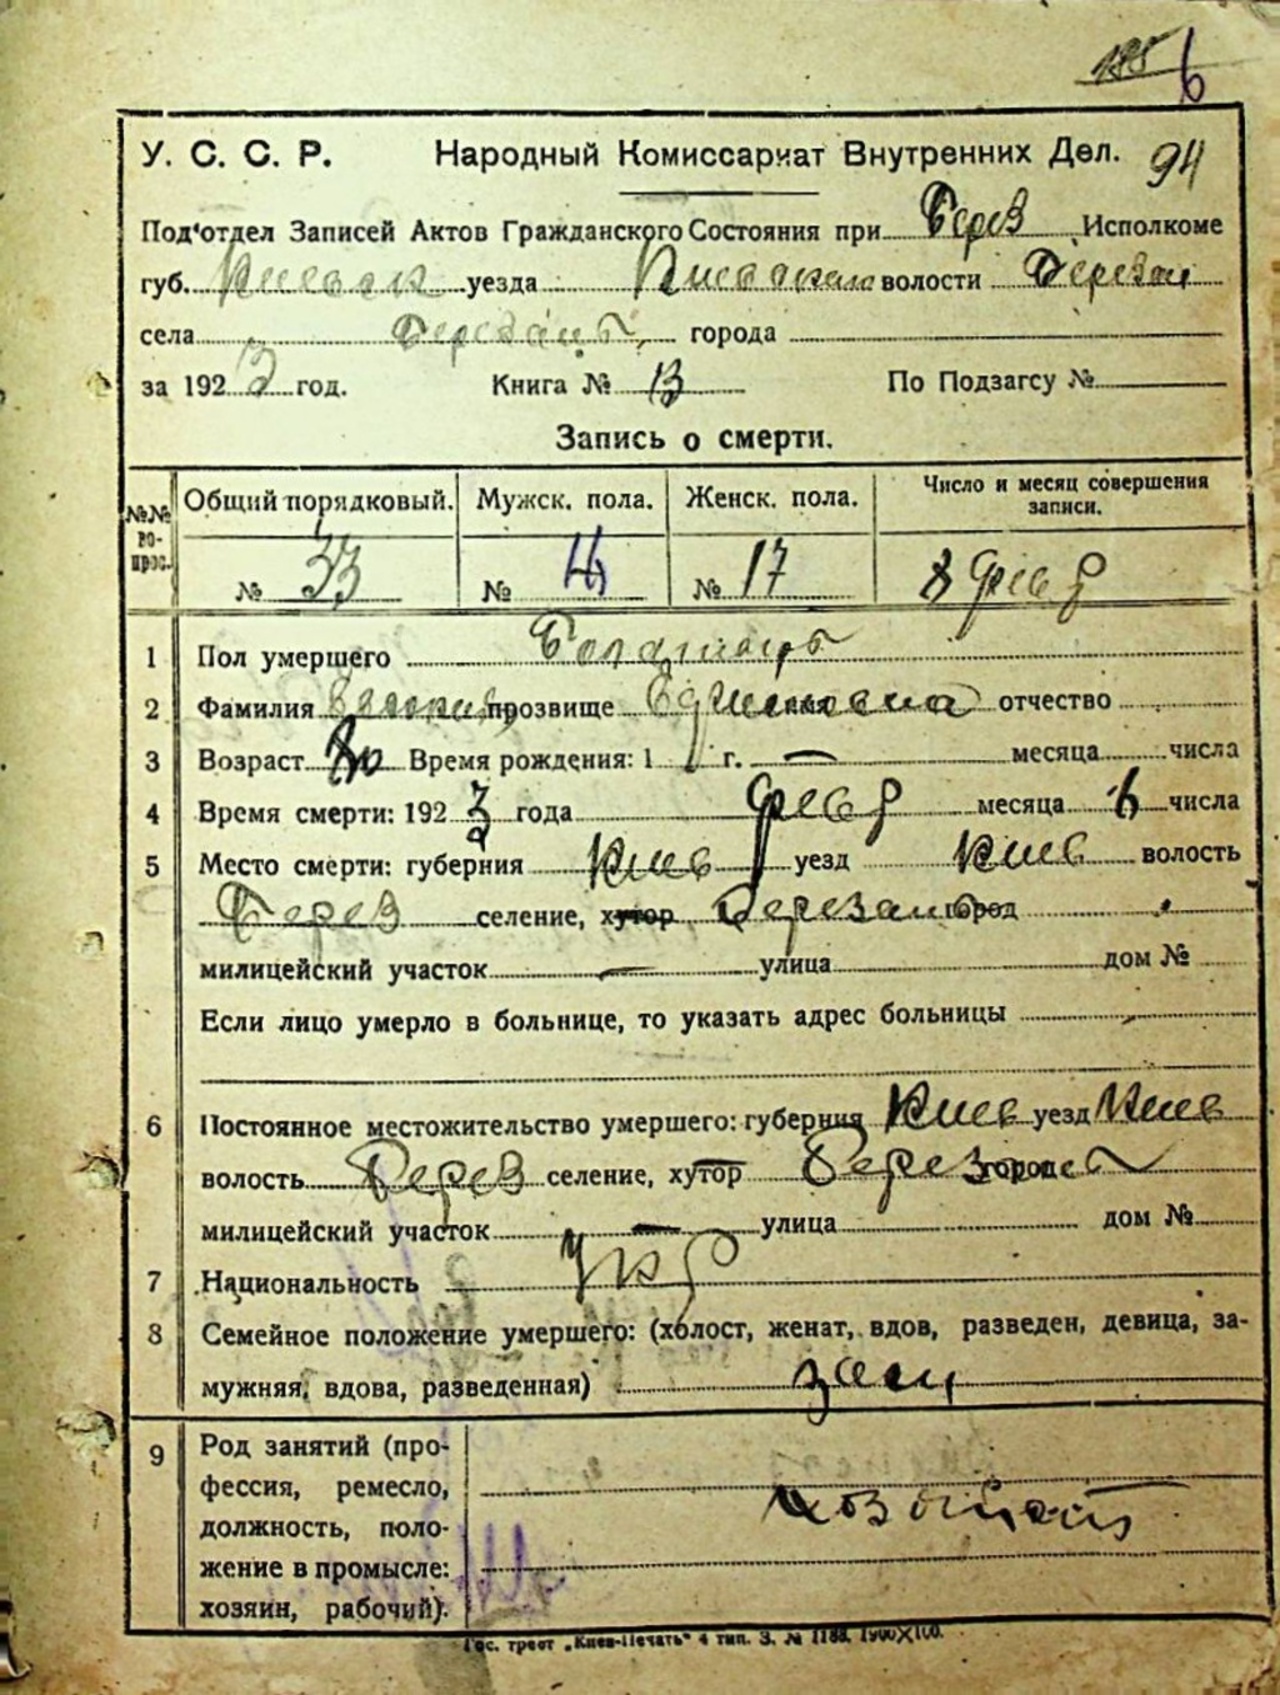 185 6
У. С. С. Р. Народный Комиссариат Внутренних Дел. 94
Под'отдел Записей Актов Гражданского Состояния при Берез Исполкоме
губ. Киевск уезда Киевского волости Березан
села Березань города
за 1923 год. Книга № 13 По Подзагсу №
Запись о смерти.
№№ вопрос. Общий порядковый. Мужск. пола. Женск. пола. Число и месяц совершения записи.
№ 33 № № 17 8 февр
1 Пол умершего
2 Фамилия прозвище отчество
3 Возраст Время рождения: 1 г. — месяца числа
4 Время смерти: 1923 года февр месяца 6 числа
5 Место смерти: губерния Киев уезд Киев волость
Берез селение, хутор Березань город
милицейский участок — улица дом №
Если лицо умерло в больнице, то указать адрес больницы
6 Постоянное местожительство умершего: губерния Киев уезд Киев
волость Берез селение, хутор Березань город
милицейский участок — улица дом №
7 Национальность Укр
8 Семейное положение умершего: (холост, женат, вдов, разведен, девица, за-
мужняя, вдова, разведенная) зам
9 Род занятий (про-
фессия, ремесло,
должность, поло-
жение в промысле:
хозяин, рабочий).
Гос. трест „Киев-Печать“ 4 тип. З. № 1188. 1900×100.